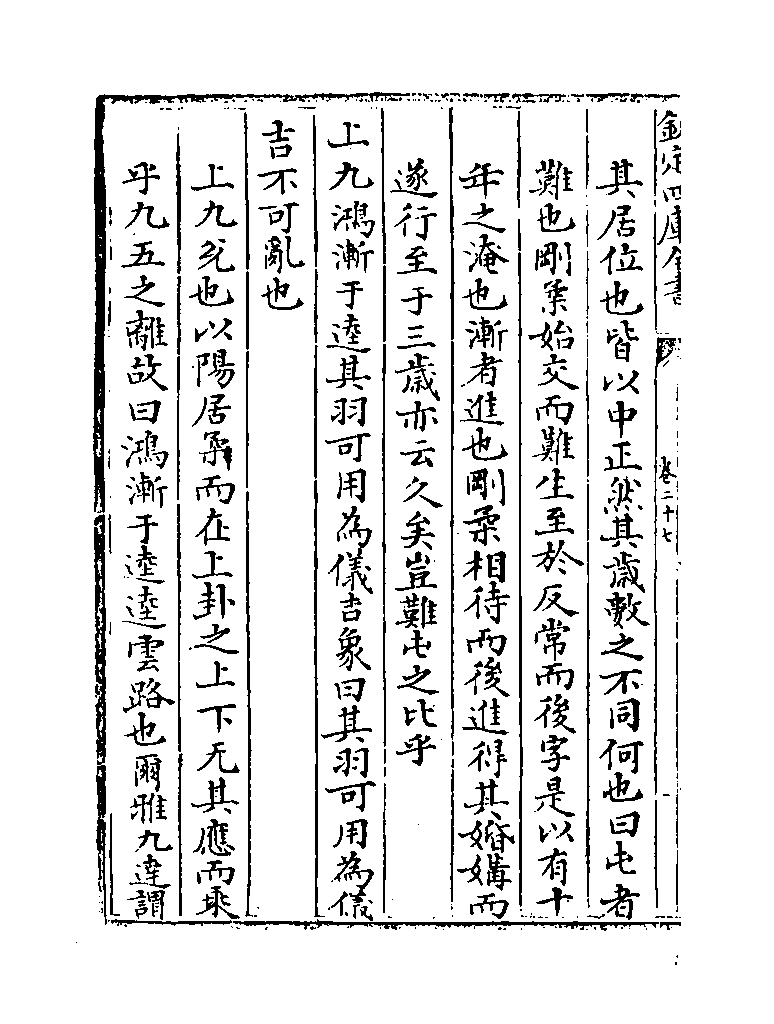 欽定四庫全書
卷二十七
其居位也皆以中正然其歲數之不同何也曰屯者
難也剛柔始交而難生至於反常而後字是以有十
年之淹也漸者進也剛柔相待而後進得其婚媾而
遂行至于三歲亦云久矣豈難屯之比乎
上九鴻漸于逵其羽可用為儀吉象曰其羽可用為儀
吉不可亂也
上九兊也以陽居柔而在上卦之上下无其應而乘
乎九五之離故曰鴻漸于逵逵雲路也爾雅九逹謂